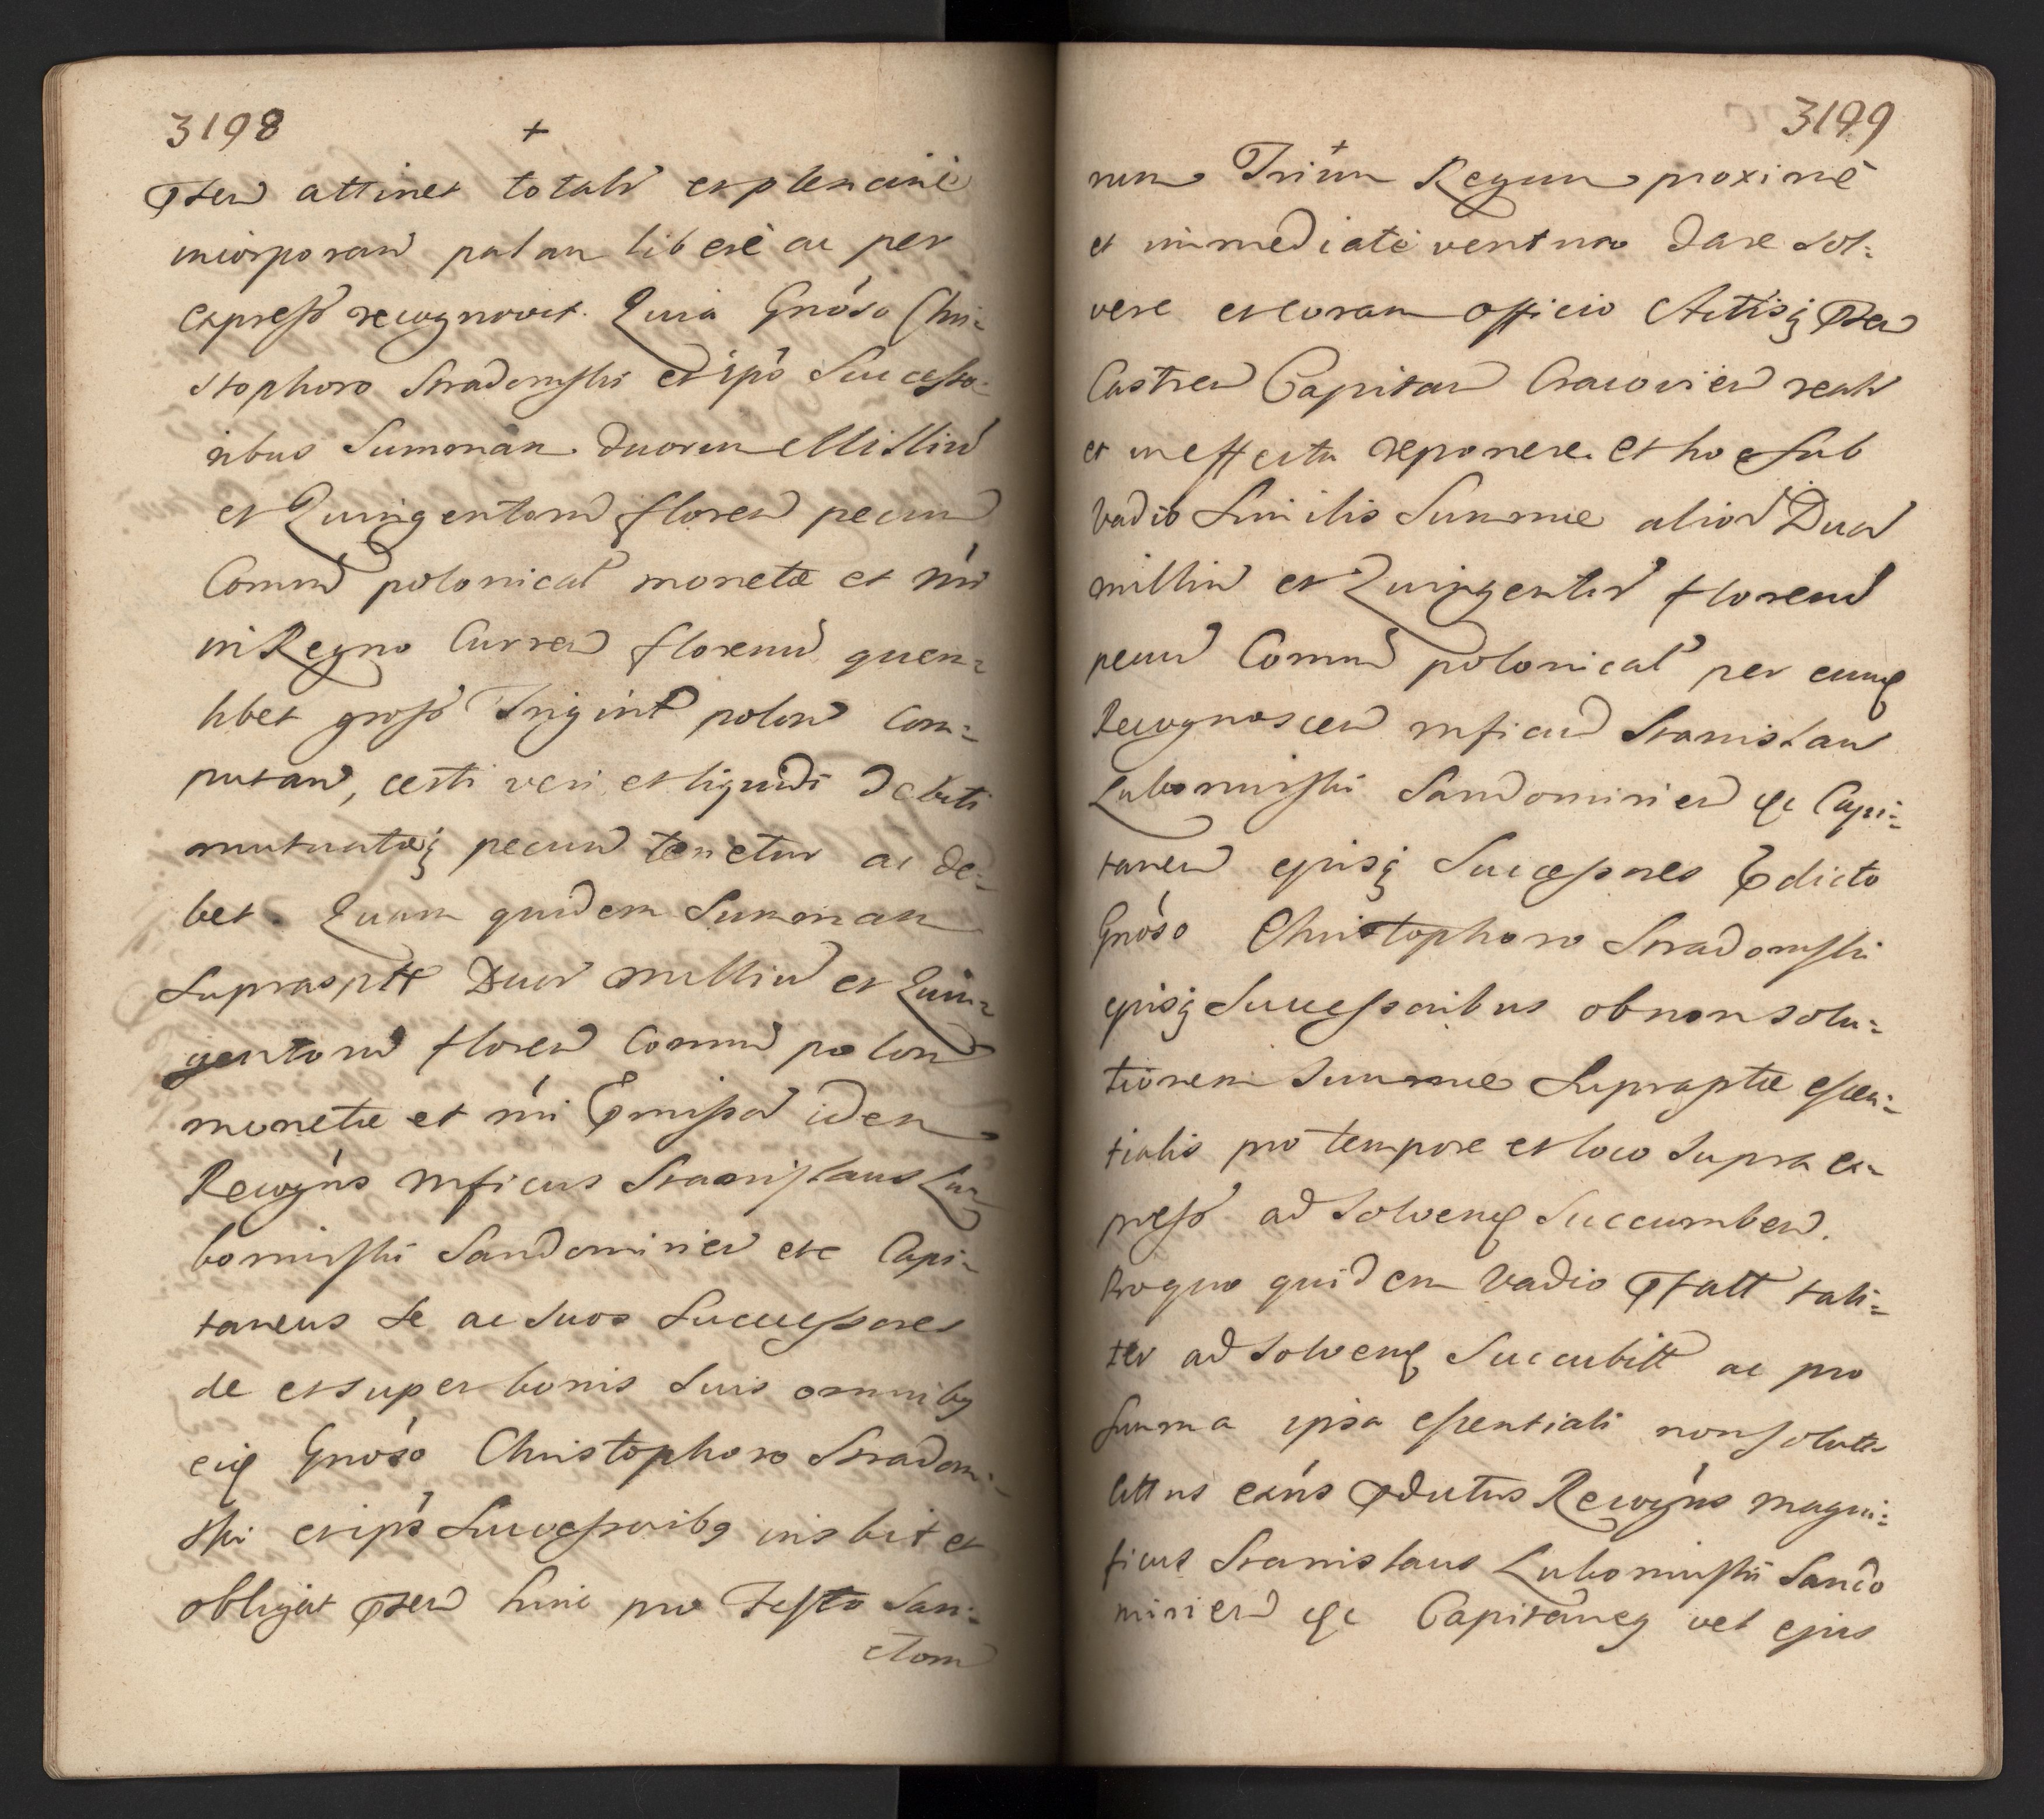 3198
+
attinet totalr et plenarie
incorporand palam libere ac per
express recognovit. Quia Gnoso Chri-
stophoro Stradomski et ipś Successo-
ribus Summam duorum Milliū
et Quingentorū floren pecun
Comun polonical monetæ et nri
in Regno Curren florenū quem-
libet gross Trigint polon Com-
putan, certi veri et liquidi debiti
mutuatæq pecun tenetur ac de-
bet. Quam quidem Summam
Suprasptt Duor Milliū et Quin-
gentorū floren Comun polon
monetæ et nri pmissor idem
Recogns Mficus Stanislaus Lu-
bomirski Sandomirien etc Capi-
taneus se ac suos Successores
de et super bonis suis omnibg
eiq Gnoso Christophoro Stradom-
ski et ipś Successoribg inscbit et
obligat hinc pro Festo San-
ctom
3199
+
num Trium Regum proxime
et immediate ventura dare sol-
vere et coram officio Actisq
Castren Capitan Cracovien realr
et in effectu reponere. Et hoc sub
Vadio Similis Summæ alior Duor
milliū et Quingentor florenū
pecun Comun polonical per eunq
Recognoscen mficum Stanislaum
Lubomirski Sandomirien etc Capi-
taneū ejusq Successores pdicto
Gnoso Christophoro Stradomski
ejusq Successoribus ob non solu-
tionem Summæ Supraptæ essen-
tialis pro tempore et loco supra ex-
press ad solvenq Succumben.
Pro quo quidem Vadio tali-
ter ad solvenq Succubitt ac pro
Summa ipsa essentiali non soluta
Citt ns exns pdictus Recogns magni-
ficus Stanislaus Lubomirski Sando
mirien etc Capitaneg vel ejus